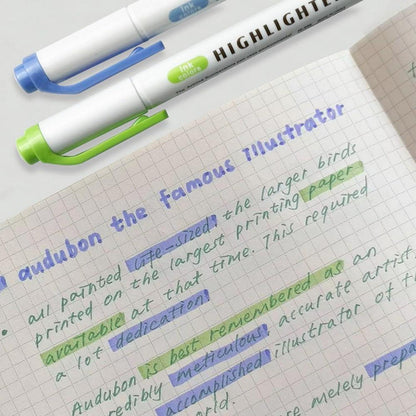 ink colors
HIGHLIGHTER
ink colors
audubon the famous Illustrator
• all painted life-sized, the larger birds
printed on the largest printing paper
available at that time. This required
a lot dedication
Audubon is best remembered as an
credibly meticulous accurate artist
accomplished illustrator of
world.
merely